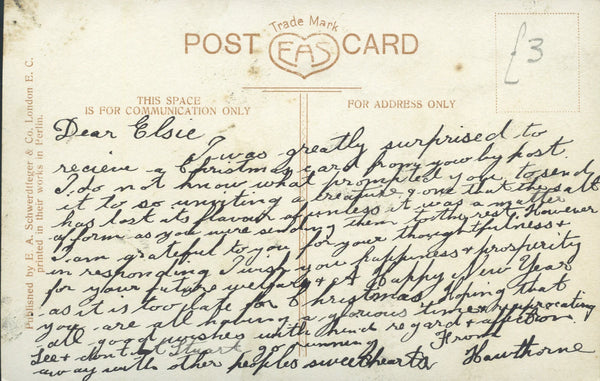 Trade Mark
POST CARD
EAS
£3
THIS SPACE
IS FOR COMMUNICATION ONLY
FOR ADDRESS ONLY
Published by E. A. Schwerdtfeger & Co. London E. C.
printed in their works in Berlin.
Dear Elsie
I was greatly surprised to
recieve a Christmas card from you by post.
I do not know what prompted you to send
it to so a creature & one that the salt
has lost its flavour of unless it was a matter
of form as you were sending them to the rest. However
I am grateful to you for your thoughtfulness &
in responding I wish you happiness & prosperity
for your future welfare & A Happy New Year
as it is too late for Christmas, hoping that
you are all having a glorious time & reciprocating
all good wishes with kind regard & affection
From
See & don't let Stuart go running
away with other peoples sweethearts Hawthorne